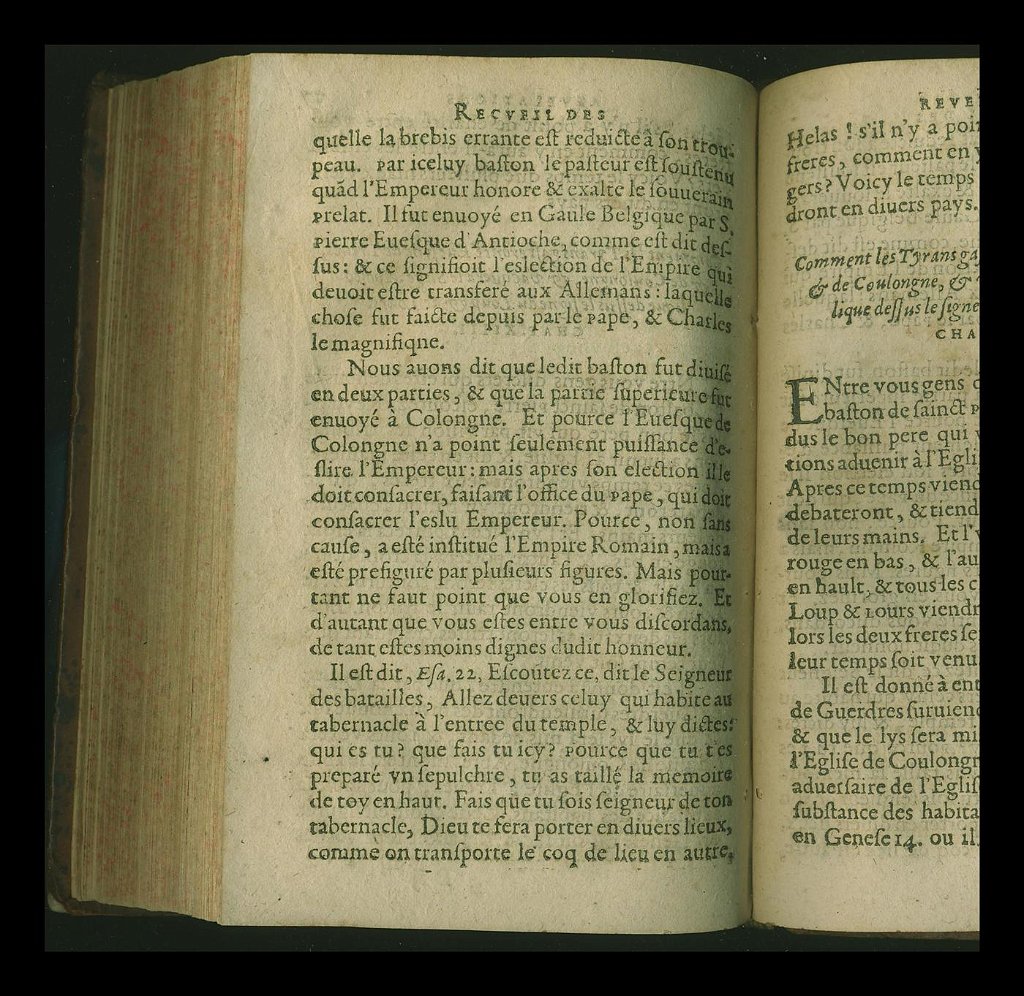 RECVEIL DES
quelle la brebis errante eſt reduicte à ſon trou-
peau. Par iceluy baſton le paſteur eſt ſouſtenu
quãd l'Empereur honore & exalte le ſouuerain
prelat. Il fut enuoyé en Gaule Belgique par S.
Pierre Eueſque d'Antioche, comme eſt dit deſ-
ſus: & ce ſignifioit l'eslection de l'Empire qui
deuoit eſtre transferé aux Allemans: laquelle
choſe fut faicte depuis par le Pape, & Charles
le magnifiqne.
Nous auons dit que ledit baſton fut diuiſé
en deux parties, & que la partie ſuperieure fut
enuoyé à Colongne. Et pource l'Eueſque de
Colongne n'a point ſeulement puiſſance d'e-
ſlire l'Empereur: mais apres ſon election il le
doit conſacrer, faiſant l'office du Pape, qui doit
conſacrer l'eslu Empereur. Pource, non ſans
cauſe, a eſté inſtitué l'Empire Romain, mais a
eſté prefiguré par pluſieurs figures. Mais pour-
tant ne faut point que vous en glorifiez. Et
d'autant que vous eſtes entre vous diſcordans,
de tant eſtes moins dignes dudit honneur.
Il eſt dit, Eſa. 22, Eſcoutez ce, dit le Seigneur
des batailles, Allez deuers celuy qui habite au
tabernacle à l'entree du temple, & luy dictes:
qui es tu? que fais tu icy? Pource que tu t'es
preparé vn ſepulchre, tu as taillé la memoire
de toy en haut. Fais que tu ſois ſeigneur de ton
tabernacle, Dieu te fera porter en diuers lieux,
comme on tranſporte le coq de lieu en autre,
REVE
Helas! s'il n'y a poin
freres, comment en y
gers? Voicy le temps
dront en diuers pays.
Comment les Tyrans ga
& de Coulongne, &
lique deſſus le ſigne
CHA
ENtre vous gens d
baſton de ſainct P
dus le bon pere qui v
tions aduenir à l'Egli
Apres ce temps viend
debateront, & tiend
de leurs mains. Et l'v
rouge en bas, & l'au
en hault, & tous les c
Loup & Lours viendr
lors les deux freres ſe
leur temps ſoit venu
Il eſt donné à ent
de Guerdres ſuruiend
& que le lys ſera mi
l'Egliſe de Coulongn
aduerſaire de l'Egliſ
ſubſtance des habita
en Geneſe 14. ou il